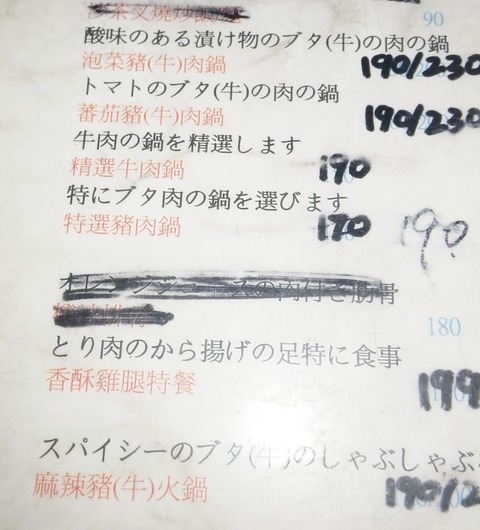 90
酸味のある漬け物のブタ(牛)の肉の鍋
泡菜豬(牛)肉鍋 190/230
トマトのブタ(牛)の肉の鍋
蕃茄豬(牛)肉鍋 190/230
牛肉の鍋を精選します
精選牛肉鍋 190
特にブタ肉の鍋を選びます
特選豬肉鍋 170 190
180
とり肉のから揚げの足特に食事
香酥雞腿特餐 199
スパイシーのブタ(牛)のしゃぶしゃぶ
麻辣豬(牛)火鍋